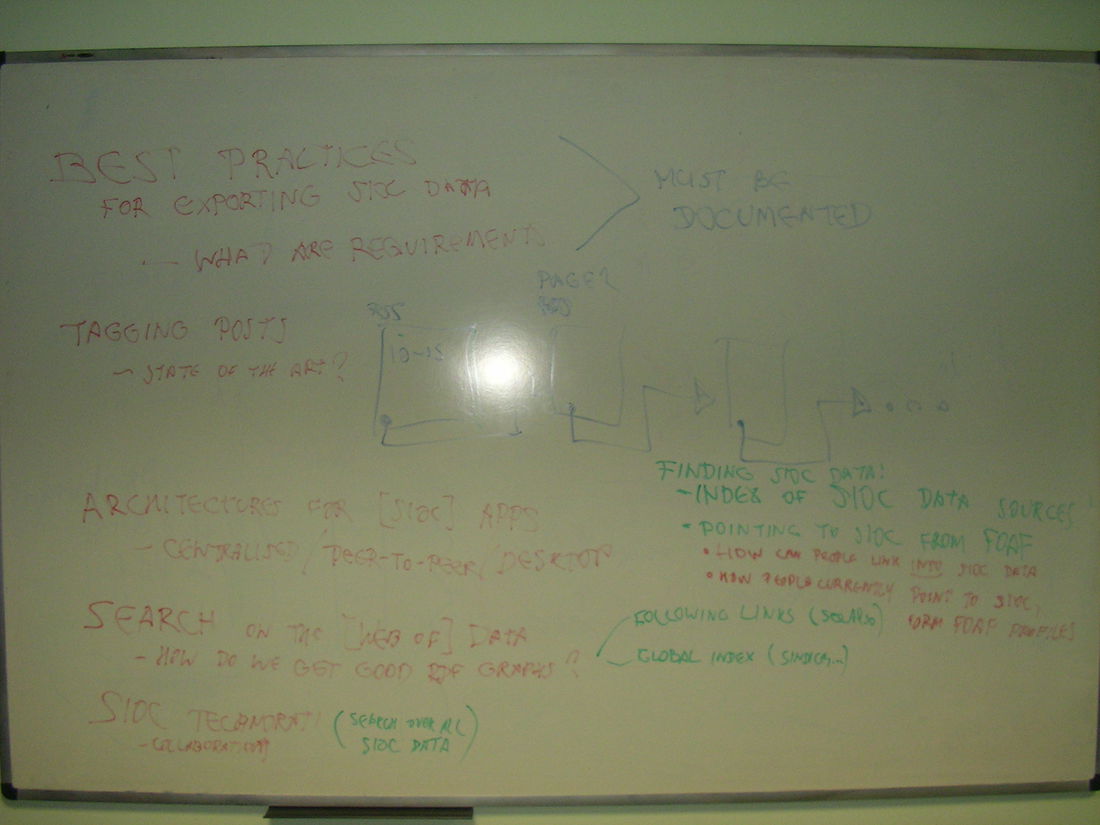 BEST PRACTICES
FOR EXPORTING SIOC DATA
— WHAT ARE REQUIREMENTS
MUST BE
DOCUMENTED
TAGGING POSTS
- STATE OF THE ART?
RSS
10-15
PAGE 2
RSS
ARCHITECTURES FOR [SIOC] APPS
- CENTRALISED / PEER-TO-PEER / DESKTOP
SEARCH ON THE [WEB OF] DATA
- HOW DO WE GET GOOD RDF GRAPHS?
FOLLOWING LINKS (SEEALSO)
GLOBAL INDEX (SINDICE...)
SIOC TECHNORATI (SEARCH OVER ALL
SIOC DATA)
FINDING SIOC DATA:
- INDEX OF SIOC DATA SOURCES
- POINTING TO SIOC FROM FOAF
• HOW CAN PEOPLE LINK INTO SIOC DATA
• HOW PEOPLE CURRENTLY POINT TO SIOC,
FORM FOAF PROFILES